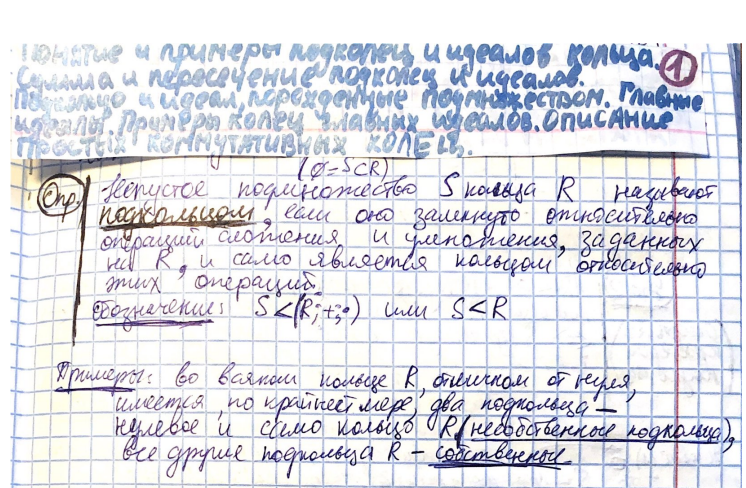 Понятие и примеры подколец и идеалов кольца. ①
Сумма и пересечение подколец и идеалов.
Подкольцо и идеал, порожденные подмножеством. Главные
идеалы. Примеры колец главных идеалов. Описание
простых коммутативных колец.
(∅≠S⊂R)
Опр. Непустое подмножество S кольца R называют
подкольцом, если оно замкнуто относительно
операций сложения и умножения, заданных
на R, и само является кольцом относительно
этих операций.
Обозначение: S<(R;+;·) или S<R
Примеры: во всяком кольце R, отличном от нуля,
имеется, по крайней мере, два подкольца —
нулевое и само кольцо R (несобственные подкольца),
все другие подкольца R – собственные